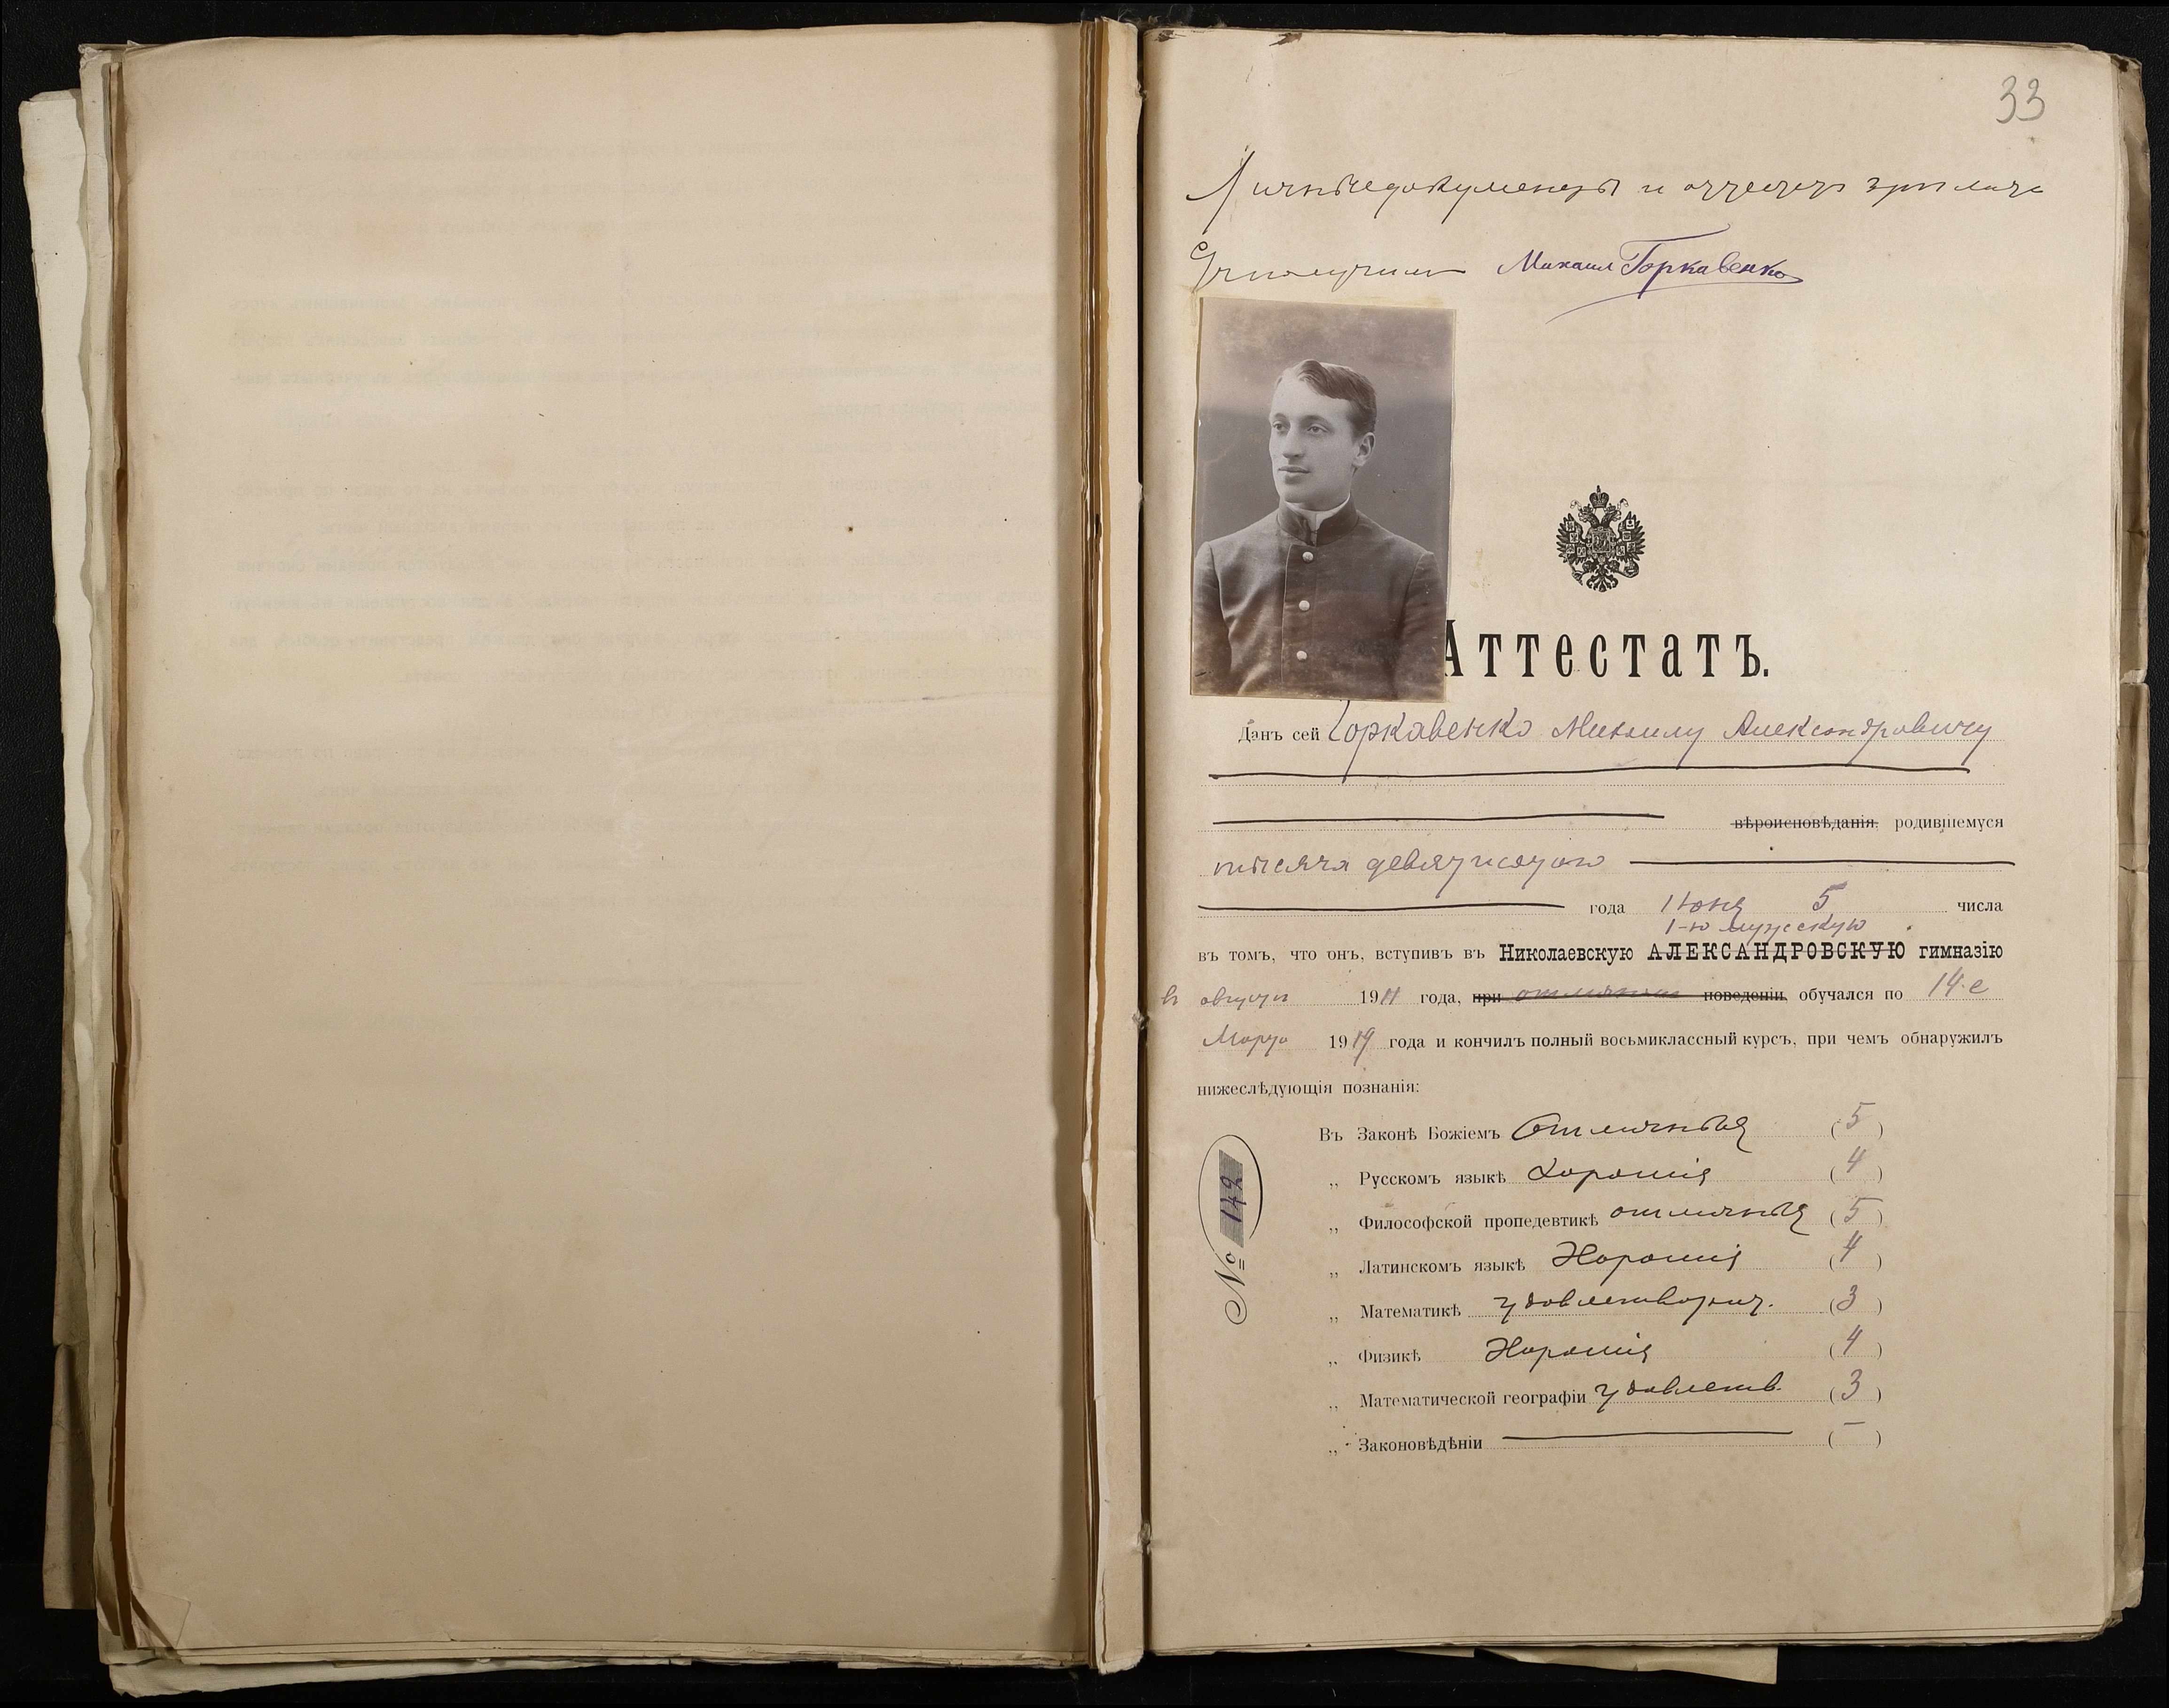 33
Личные документы и аттестат
получил Михаил Горкавенко
Аттестатъ.
Данъ сей Горкавенко Михаилу Александровичу
вѣроисповѣданія, родившемуся
тысяча девятисотого
года Июня 5 числа
1-ю мужскую
въ томъ, что онъ, вступивъ въ Николаевскую АЛЕКСАНДРОВСКУЮ гимназію
в августе 1911 года, при отличномъ поведеніи, обучался по 14-е
Марта 1919 года и кончилъ полный восьмиклассный курсъ, при чемъ обнаружилъ
нижеслѣдующія познанія:
Въ Законѣ Божіемъ Отличныя (5)
„ Русскомъ языкѣ Хорошія (4)
„ Философской пропедевтикѣ отличныя (5)
„ Латинскомъ языкѣ Хорошія (4)
„ Математикѣ удовлетворит. (3)
„ Физикѣ Хорошія (4)
„ Математической географіи удовлетв. (3)
„ Законовѣдѣніи — (—)
№ 142